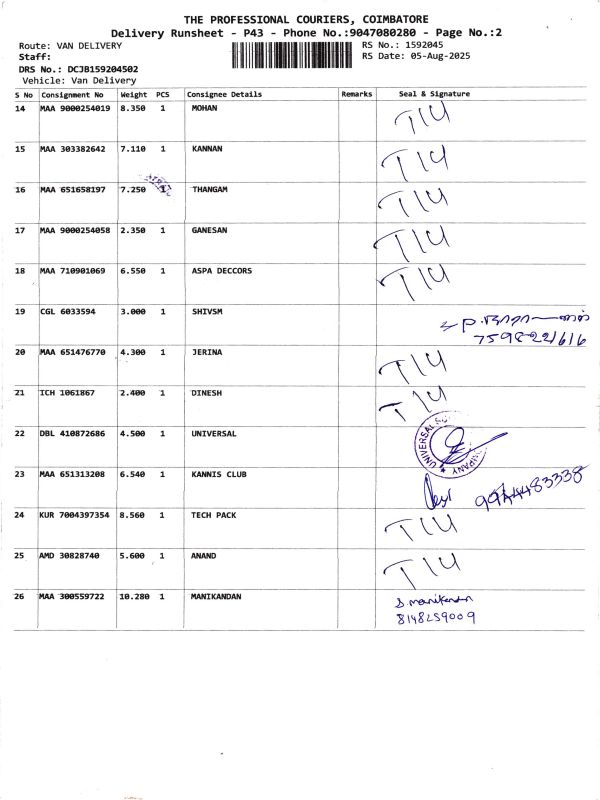 THE PROFESSIONAL COURIERS, COIMBATORE
Delivery Runsheet - P43 - Phone No.:9047080280 - Page No.:2
Route: VAN DELIVERY
RS No.: 1592045
Staff:
RS Date: 05-Aug-2025
DRS No.: DCJB159204502
Vehicle: Van Delivery
S No Consignment No Weight PCS Consignee Details Remarks Seal & Signature
14 MAA 9000254019 8.350 1 MOHAN TIU
15 MAA 303382642 7.110 1 KANNAN TIU
16 MAA 651658197 7.250 1 THANGAM TIU
17 MAA 9000254058 2.350 1 GANESAN TIU
18 MAA 710901069 6.550 1 ASPA DECCORS TIU
19 CGL 6033594 3.000 1 SHIVSM
20 MAA 651476770 4.300 1 JERINA TIU
21 ICH 1061867 2.400 1 DINESH TIU
22 DBL 410872686 4.500 1 UNIVERSAL UNIVERSAL
23 MAA 651313208 6.540 1 KANNIS CLUB 9944483338
24 KUR 7004397354 8.560 1 TECH PACK TIU
25 AMD 30828740 5.600 1 ANAND TIU
26 MAA 300559722 10.280 1 MANIKANDAN S. manikandan
8148259009